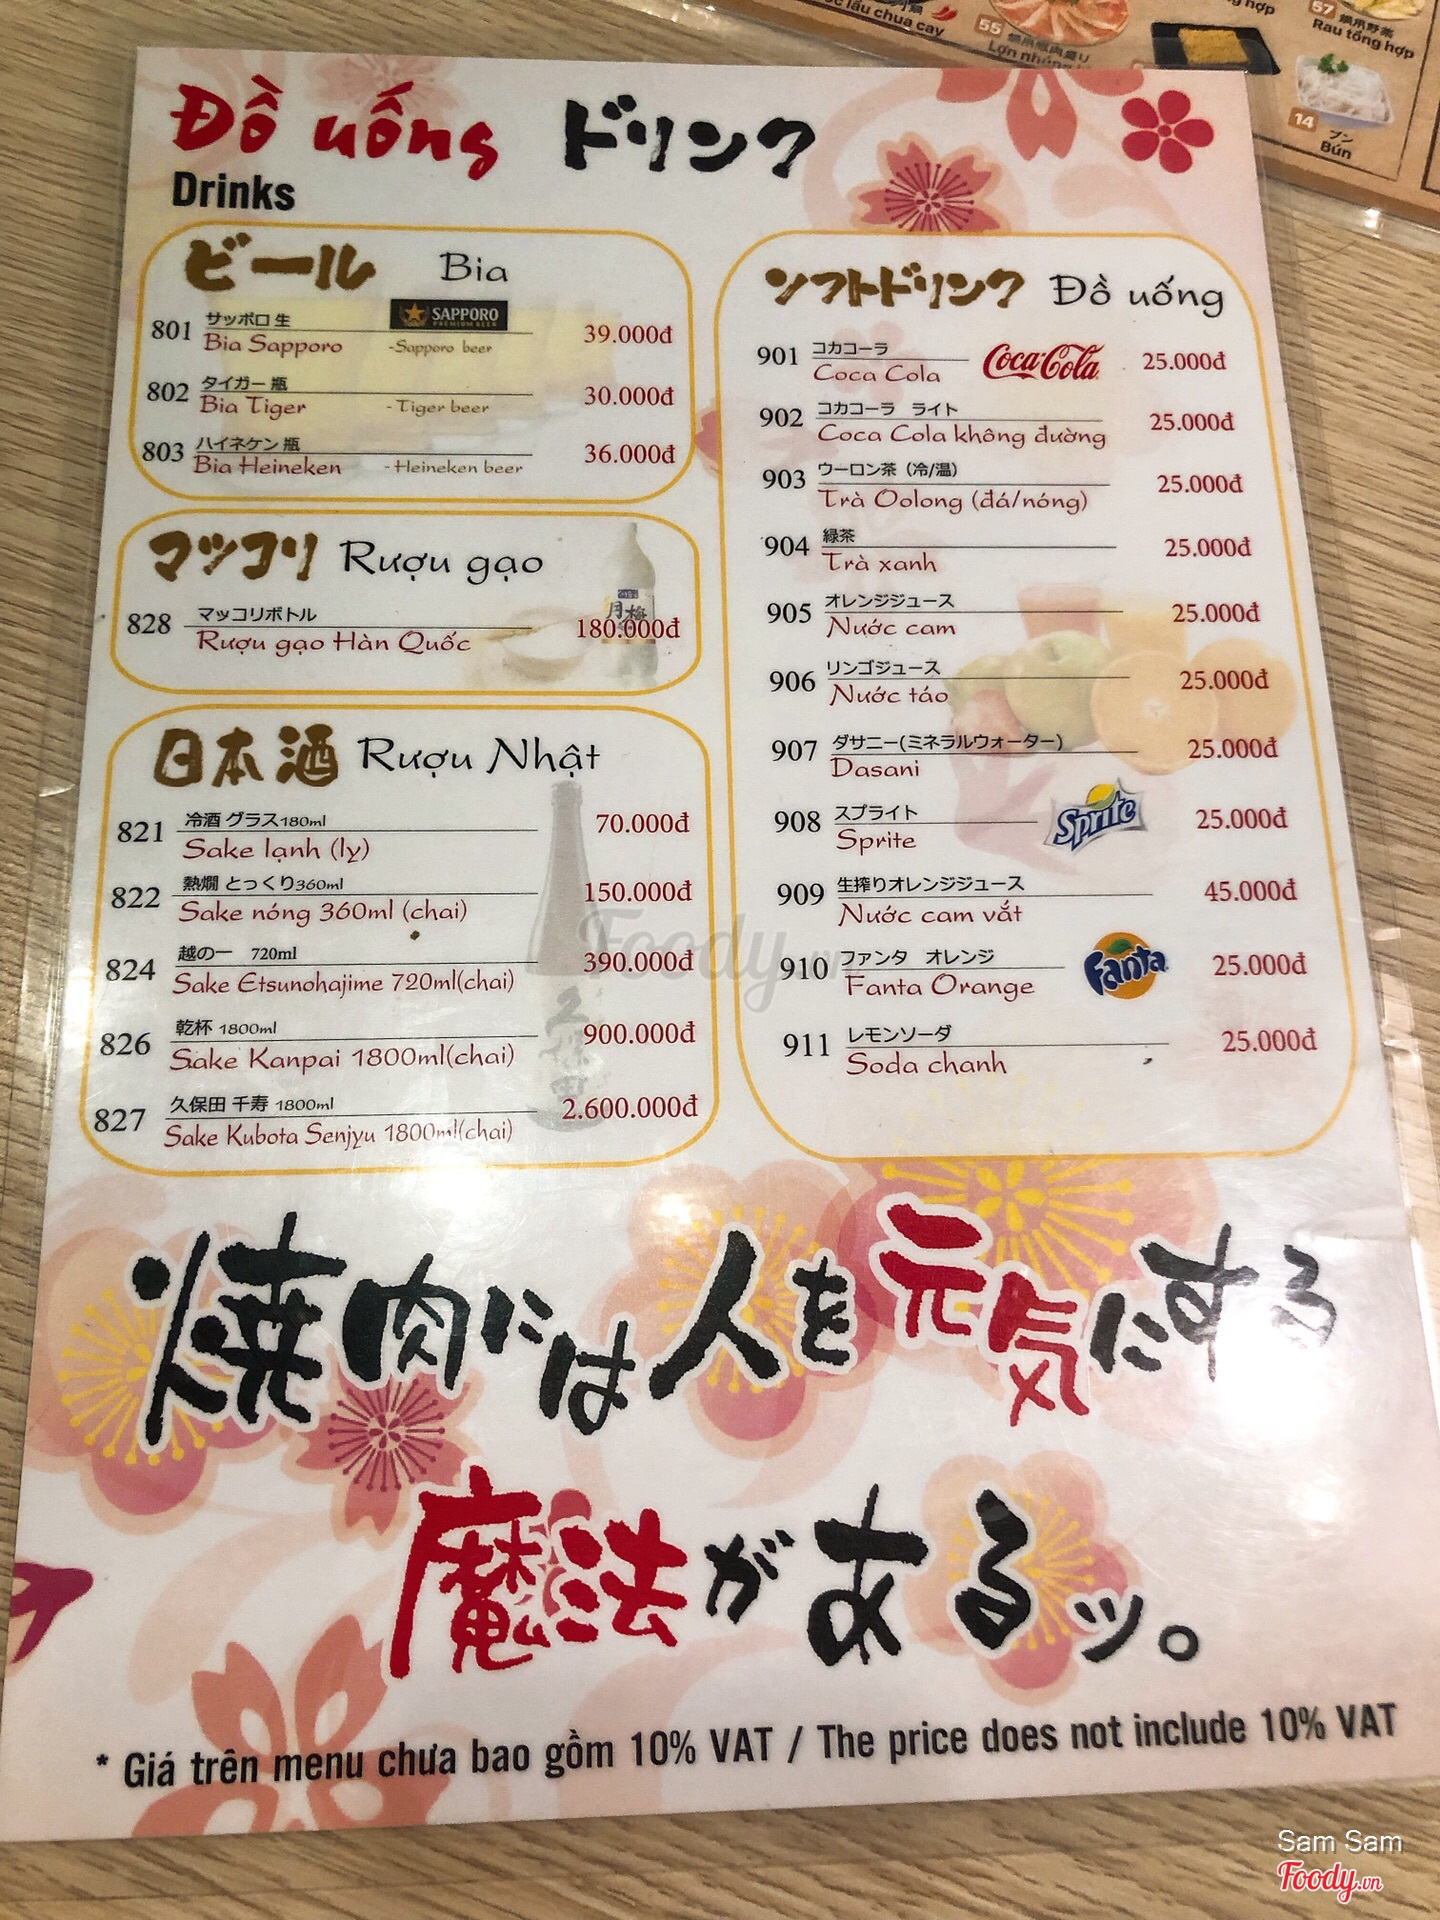 57 鍋用野菜
Rau tổng hợp
lẩu chua cay
55
14 ブン
Bún
Đồ uống ドリンク
Drinks
ビール Bia
801 サッポロ 生 SAPPORO
PREMIUM BEER
Bia Sapporo -Sapporo beer 39.000đ
802 タイガー 瓶
Bia Tiger - Tiger beer 30.000đ
803 ハイネケン 瓶
Bia Heineken - Heineken beer 36.000đ
マッコリ Rượu gạo
828 マッコリボトル
Rượu gạo Hàn Quốc 180.000đ
日本酒 Rượu Nhật
821 冷酒 グラス180ml
Sake lạnh (ly) 70.000đ
822 熱燗 とっくり360ml
Sake nóng 360ml (chai) 150.000đ
824 越の一 720ml
Sake Etsunohajime 720ml(chai) 390.000đ
826 乾杯 1800ml
Sake Kanpai 1800ml(chai) 900.000đ
827 久保田 千寿 1800ml
Sake Kubota Senjyu 1800ml(chai) 2.600.000đ
ソフトドリンク Đồ uống
901 コカコーラ
Coca Cola Coca-Cola 25.000đ
902 コカコーラ ライト
Coca Cola không đường 25.000đ
903 ウーロン茶（冷/温）
Trà Oolong (đá/nóng) 25.000đ
904 緑茶
Trà xanh 25.000đ
905 オレンジジュース
Nước cam 25.000đ
906 リンゴジュース
Nước táo 25.000đ
907 ダサニー(ミネラルウォーター)
Dasani 25.000đ
908 スプライト
Sprite Sprite 25.000đ
909 生搾りオレンジジュース
Nước cam vắt 45.000đ
910 ファンタ オレンジ
Fanta Orange Fanta 25.000đ
911 レモンソーダ
Soda chanh 25.000đ
Foody.vn
焼肉には人を元気にする
魔法があるッ。
* Giá trên menu chưa bao gồm 10% VAT / The price does not include 10% VAT
Sam Sam
Foody.vn